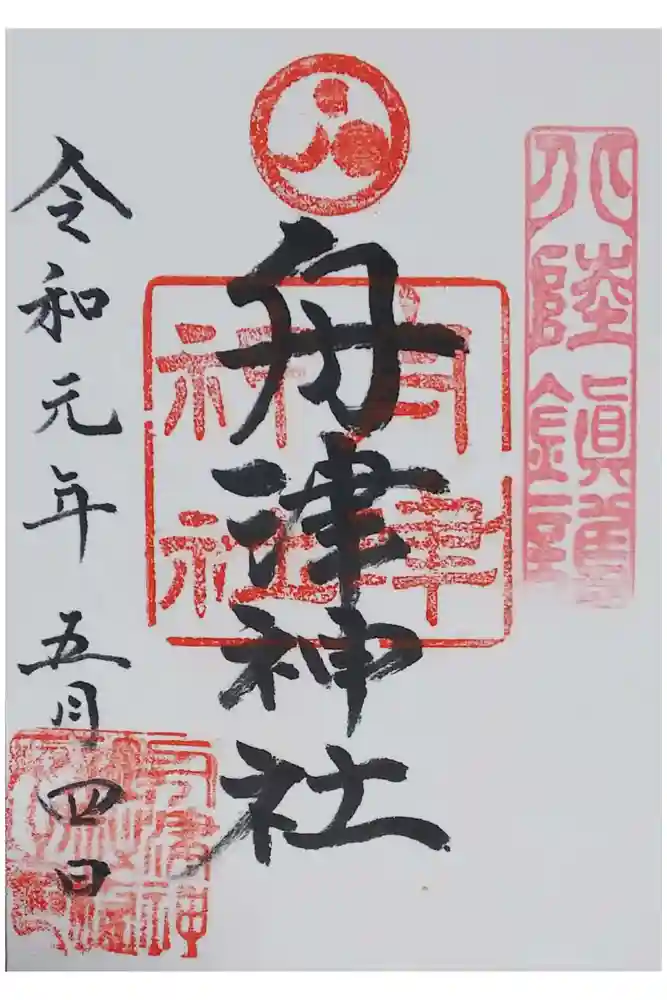 北陸鎮護
舟津神社
舟津
神社
令和元年五月四日